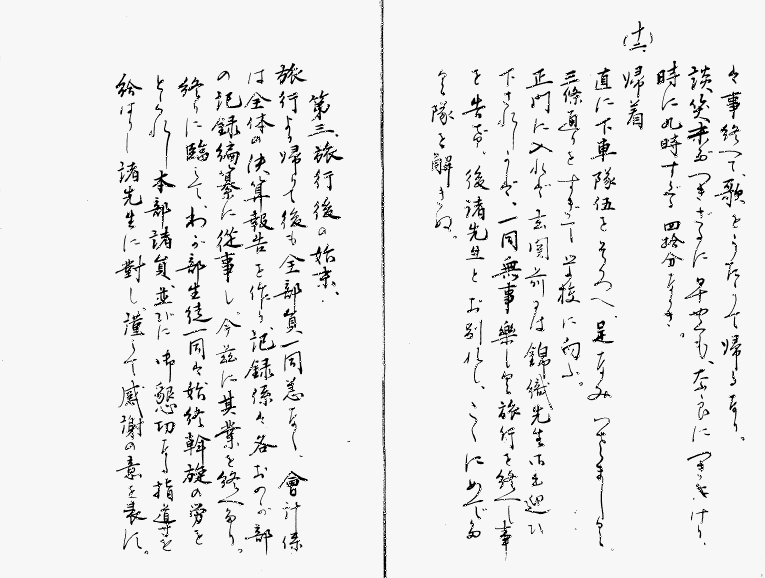 々事終へて、歌をうたひて帰るなり。
談笑未だつきざるに早くも、奈良につきにけり、
時に九時すぎ四拾分なりき。
(十二) 帰着
直に下車隊伍をそろへ、足なみつよましく
三條通りをすぎて学校に向ふ。
正門に入れば玄関前には錦織先生御出迎ひ
下されしかば、一同無事樂しき旅行を終へし事
を告げ、後諸先生とお別れし、こゝにめでたく
隊を解きぬ。
第三、旅行後の始末、
旅行より帰りて後も全部員一同恙なく、會計係
は全体の決算報告を作り、記録係は各おのが部
の記録編纂に從事し、今茲に其業を終へたり。
終りに臨みて、わが部生徒一同は始終斡旋の労を
とられし本部諸員並びに御懇切なる指導を
給はりし諸先生に對し謹みて感謝の意を表す。